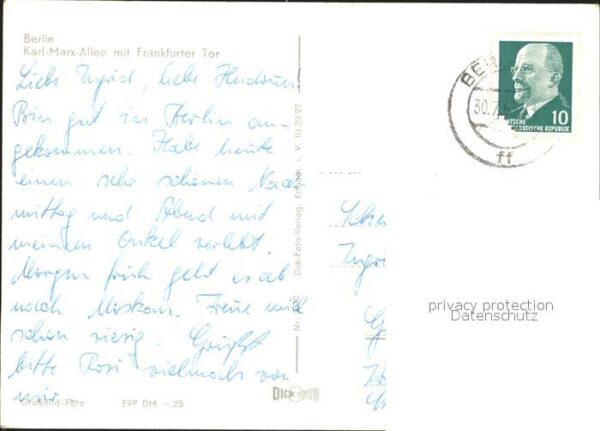 Berlin
Karl-Marx-Allee mit Frankfurter Tor
Liebe Ingrid, liebe
Bin gut in Berlin an-
gekommen. Habe heute
einen sehr schönen Nach
mittag und Abend mit
meinem Onkel verlebt.
Morgen früh geht es ab
nach Moskau. Freue mich
schon riesig. Grüßt
bitte Rosi vielmals von
mir.
Großbild-Foto EVP DM —,25
Dick-Foto-Verlag, Erlbach i. V. III/23/27
DICK
BER
30.7
ff
10
DEUTSCHE
DEMOKRATISCHE REPUBLIK
Ingri
privacy protection
Datenschutz